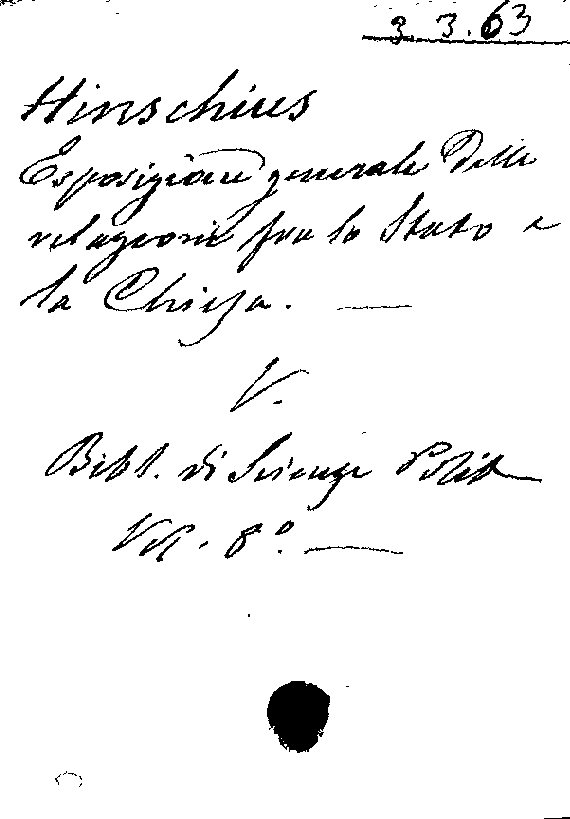 3 3.63
Hinschius
Esposizione generale delle
relazioni fra lo Stato e
la Chiesa. —
V.
Bibl. di Scienze Polit
Vol. 8º. —